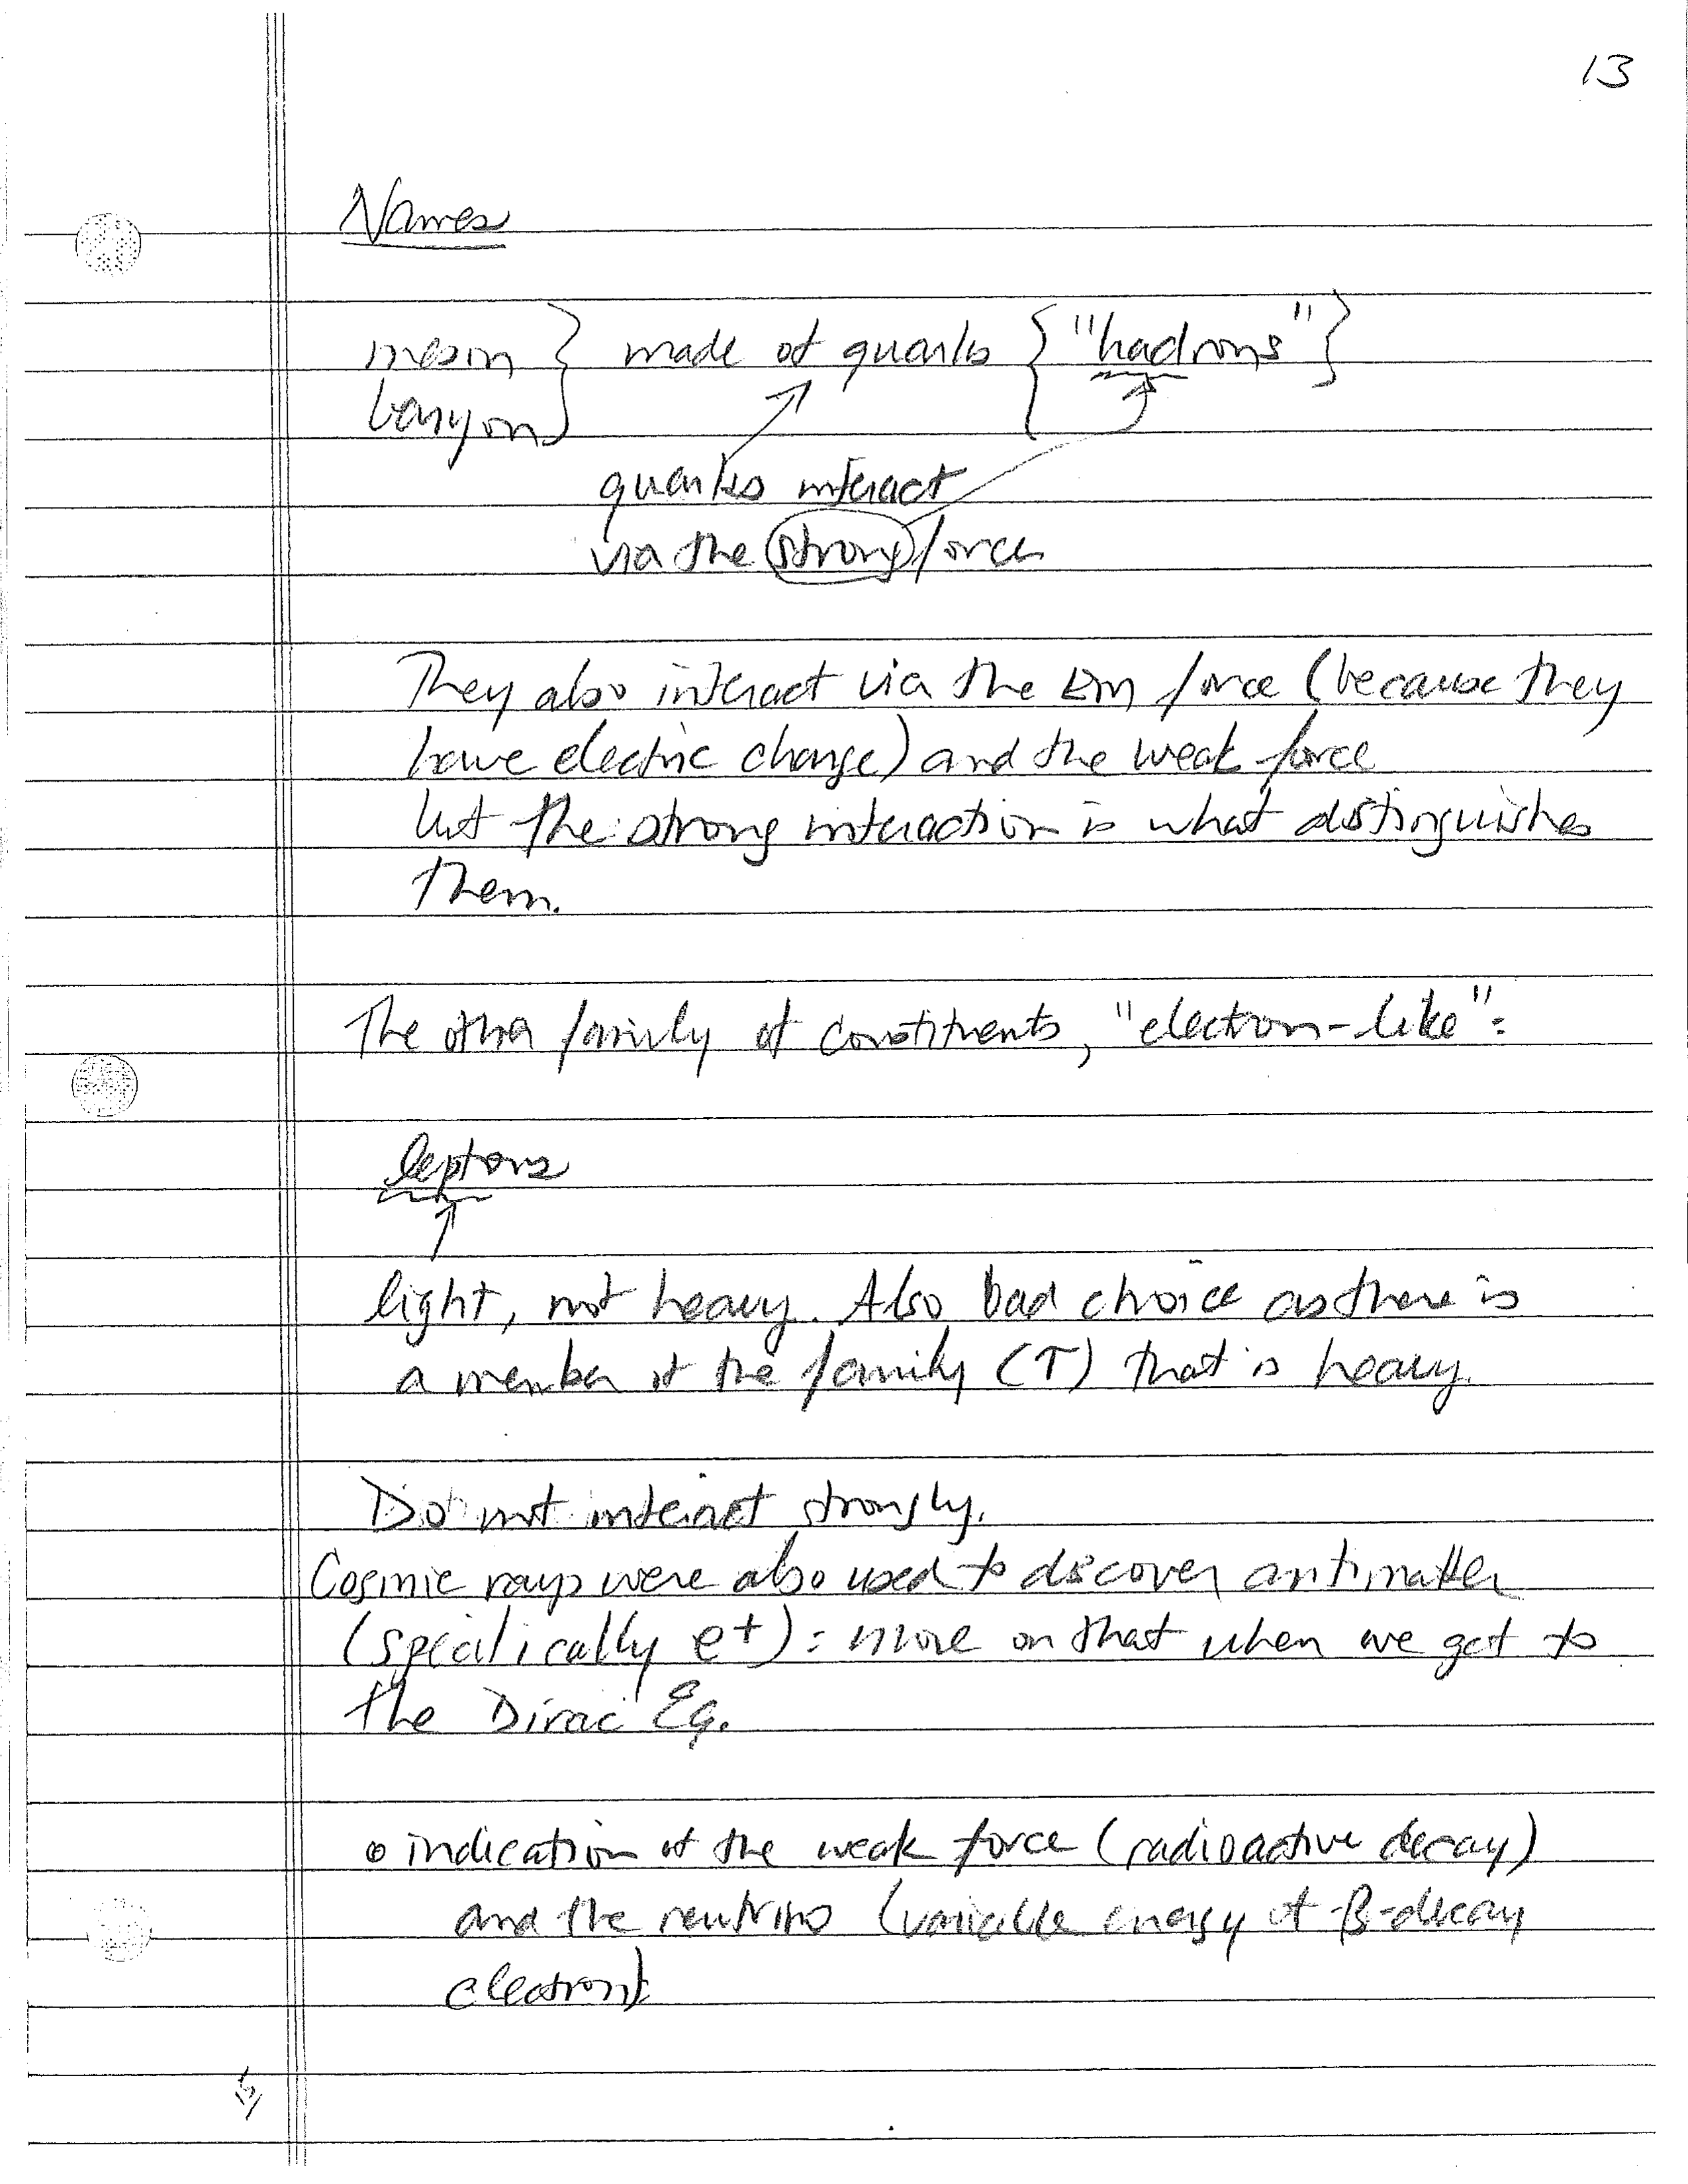 13
Names
meson } made of quarks { "hadrons" }
baryon
quarks interact
via the strong force
They also interact via the EM force (because they
have electric charge) and the weak force
but the strong interaction is what distinguishes
them.
The other family of constituents, "electron-like":
leptons
light, not heavy. Also bad choice as there is
a member of the family (τ) that is heavy.
Do not interact strongly.
Cosmic rays were also used to discover antimatter
(specifically e+): more on that when we get to
the Dirac Eq.
o indication of the weak force (radioactive decay)
and the neutrino (variable energy of β-decay
electron)